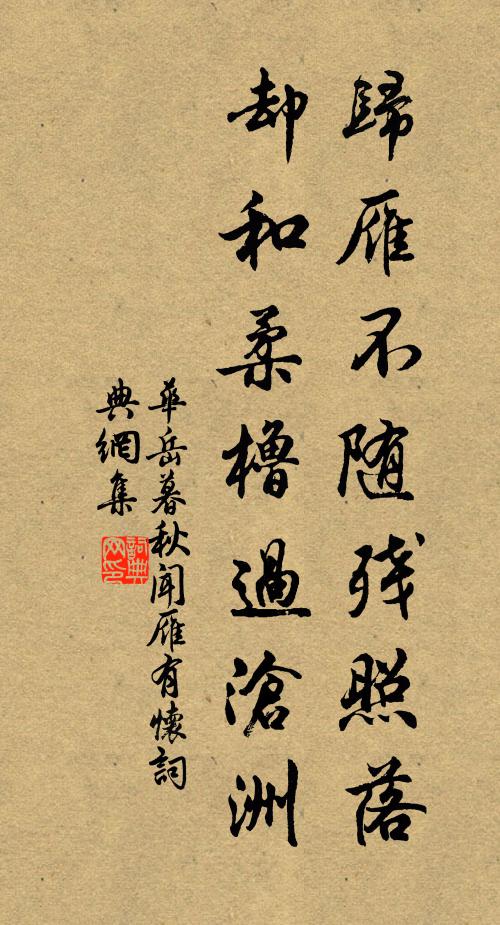 歸雁不随残照落
却和柔櫓過滄洲
華岳暮秋聞雁有懷詞
典網集
詞典
网印